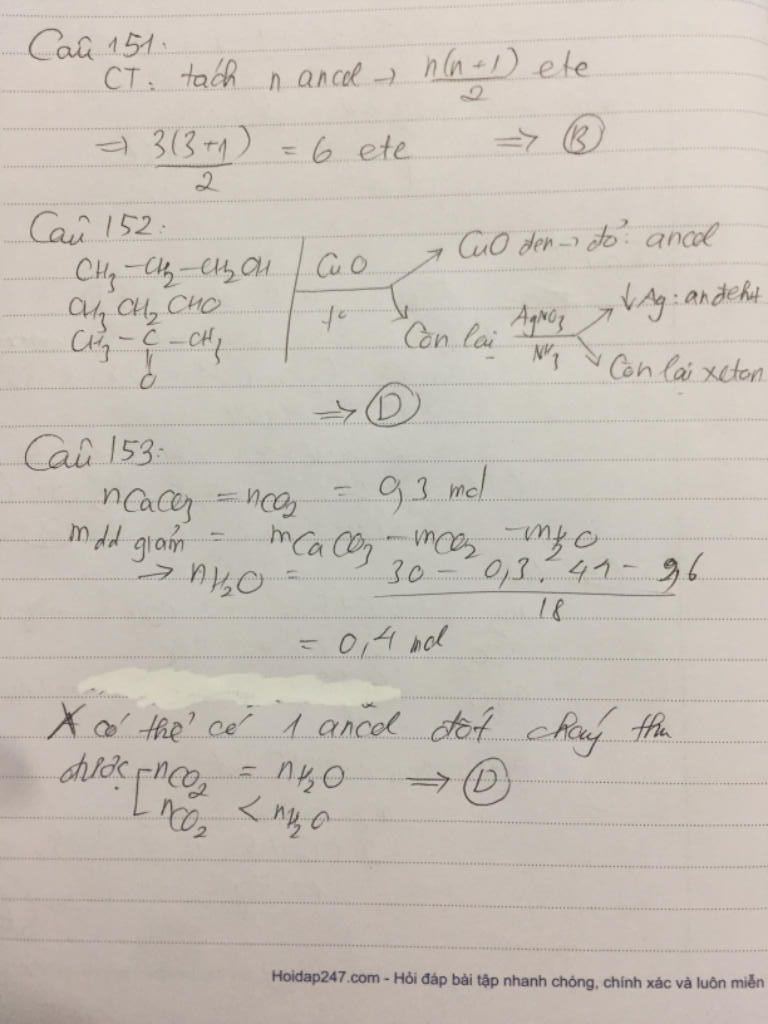 Câu 151:
CT: tách n ancol → n(n+1)/2 ete
⇒ 3(3+1)/2 = 6 ete ⇒ B
Câu 152:
CH3-CH2-CH2OH
CH3CH2CHO
CH3-C-CH3
O
CuO
t°
CuO đen → đỏ: ancol
Còn lại AgNO3/NH3
↓Ag: anđehit
Còn lại xeton
⇒ D
Câu 153:
nCaCO3 = nCO2 = 0,3 mol
m dd giảm = mCaCO3 - mCO2 - mH2O
→ nH2O = (30 - 0,3.44 - 9,6)/18
= 0,4 mol
X có thể có 1 ancol đốt cháy thu
được nCO2 = nH2O ⇒ D
nCO2 < nH2O
Hoidap247.com - Hỏi đáp bài tập nhanh chóng, chính xác và luôn miễn